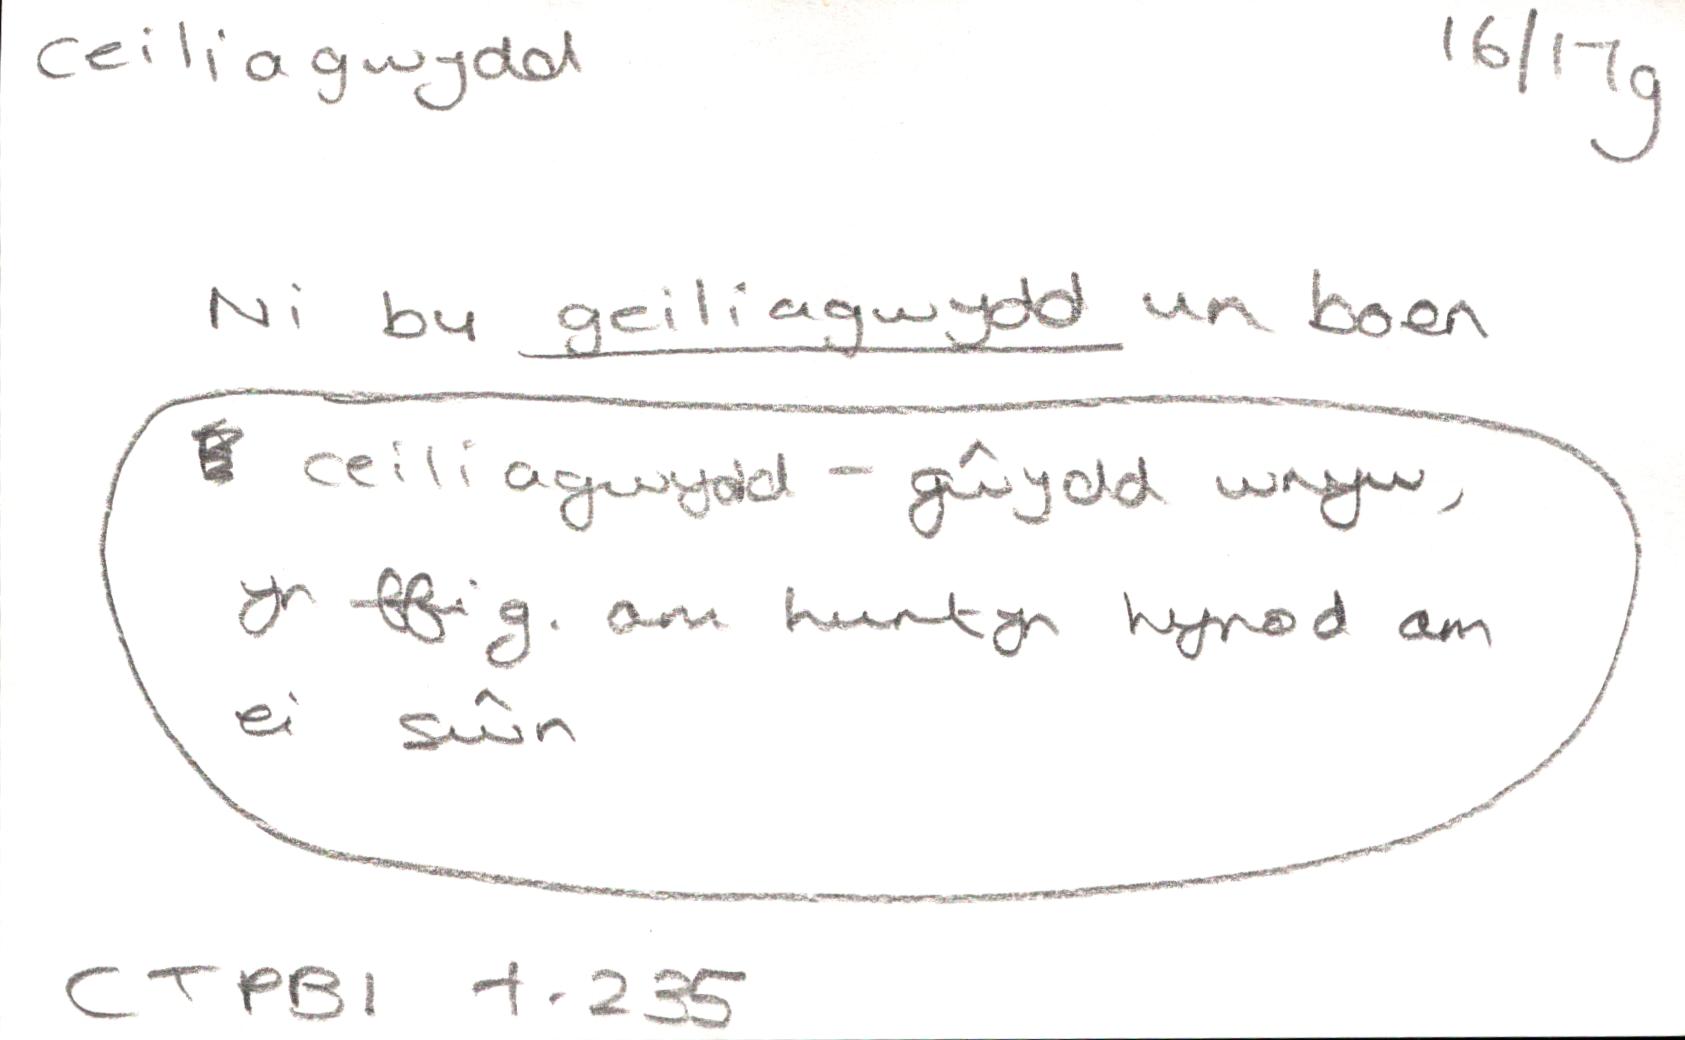 ceiliagwydd 16/17g
Ni bu geiliagwydd un boen
ceiliagwydd - gŵydd wryw,
yr ffig. am hurtyn hynod am
ei sŵn
CTPB1 t. 235